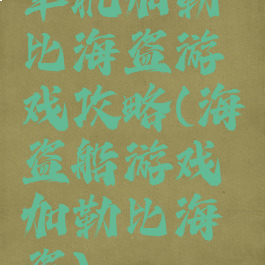 单机加勒
比海盗游
戏攻略(海
盗船游戏
加勒比海
盗)